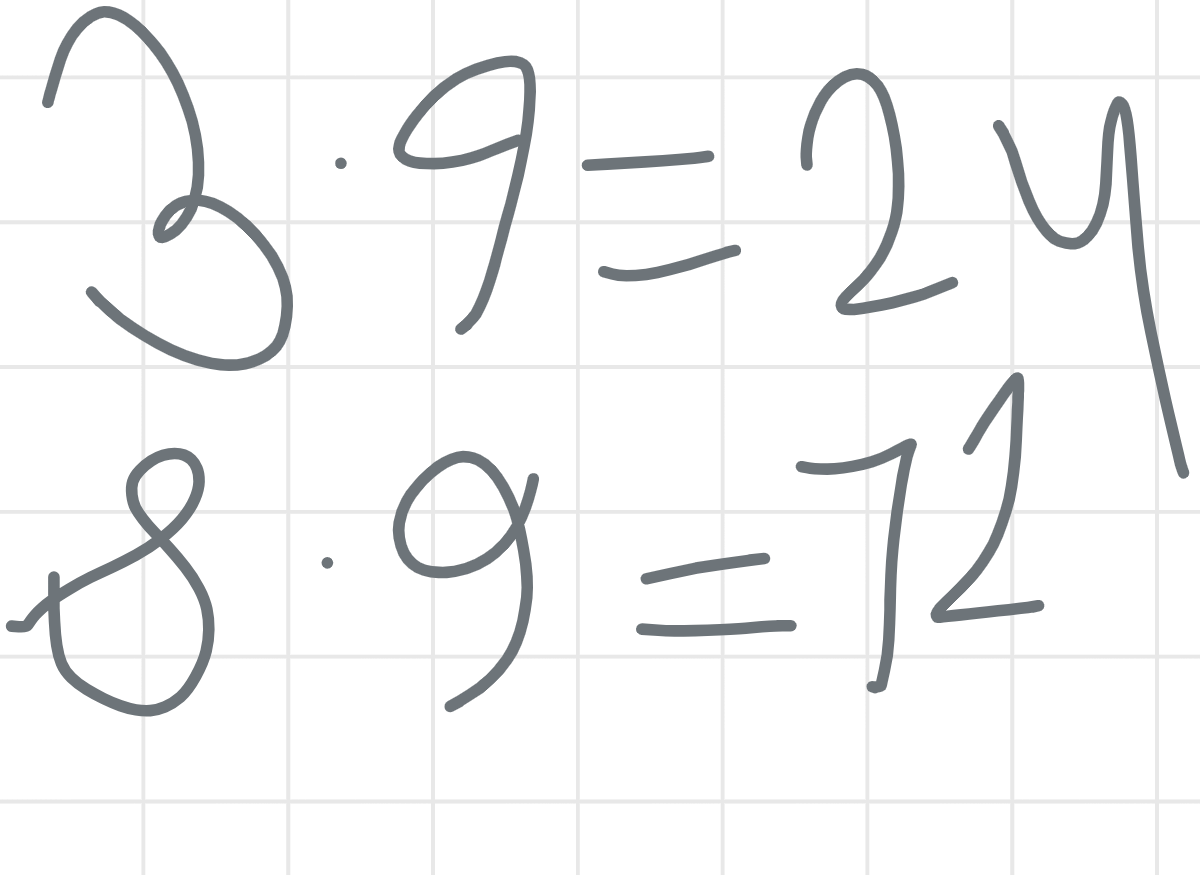 3 · 9 = 24
8 · 9 = 72